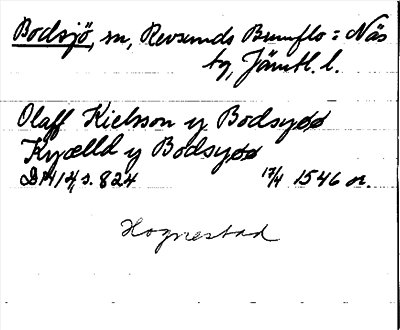 Bodsjö, sn, Revsunds Brunflo o Näs
tg, Jämtl. l.
Olaff Kielsson y Bodsyøø
Kyælld y Bodsyøø
DN 14, s. 824 17/4 1546 or.
Hognestad